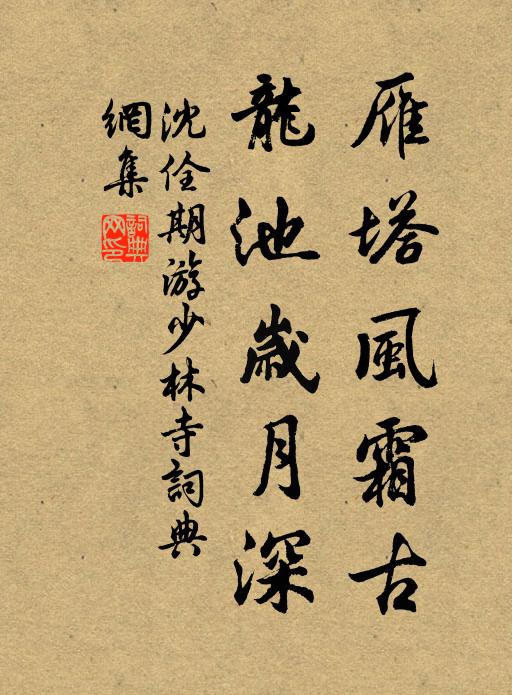 雁塔風霜古
龍池歲月深
沈佺期游少林寺詞典
網集
詞典
网印